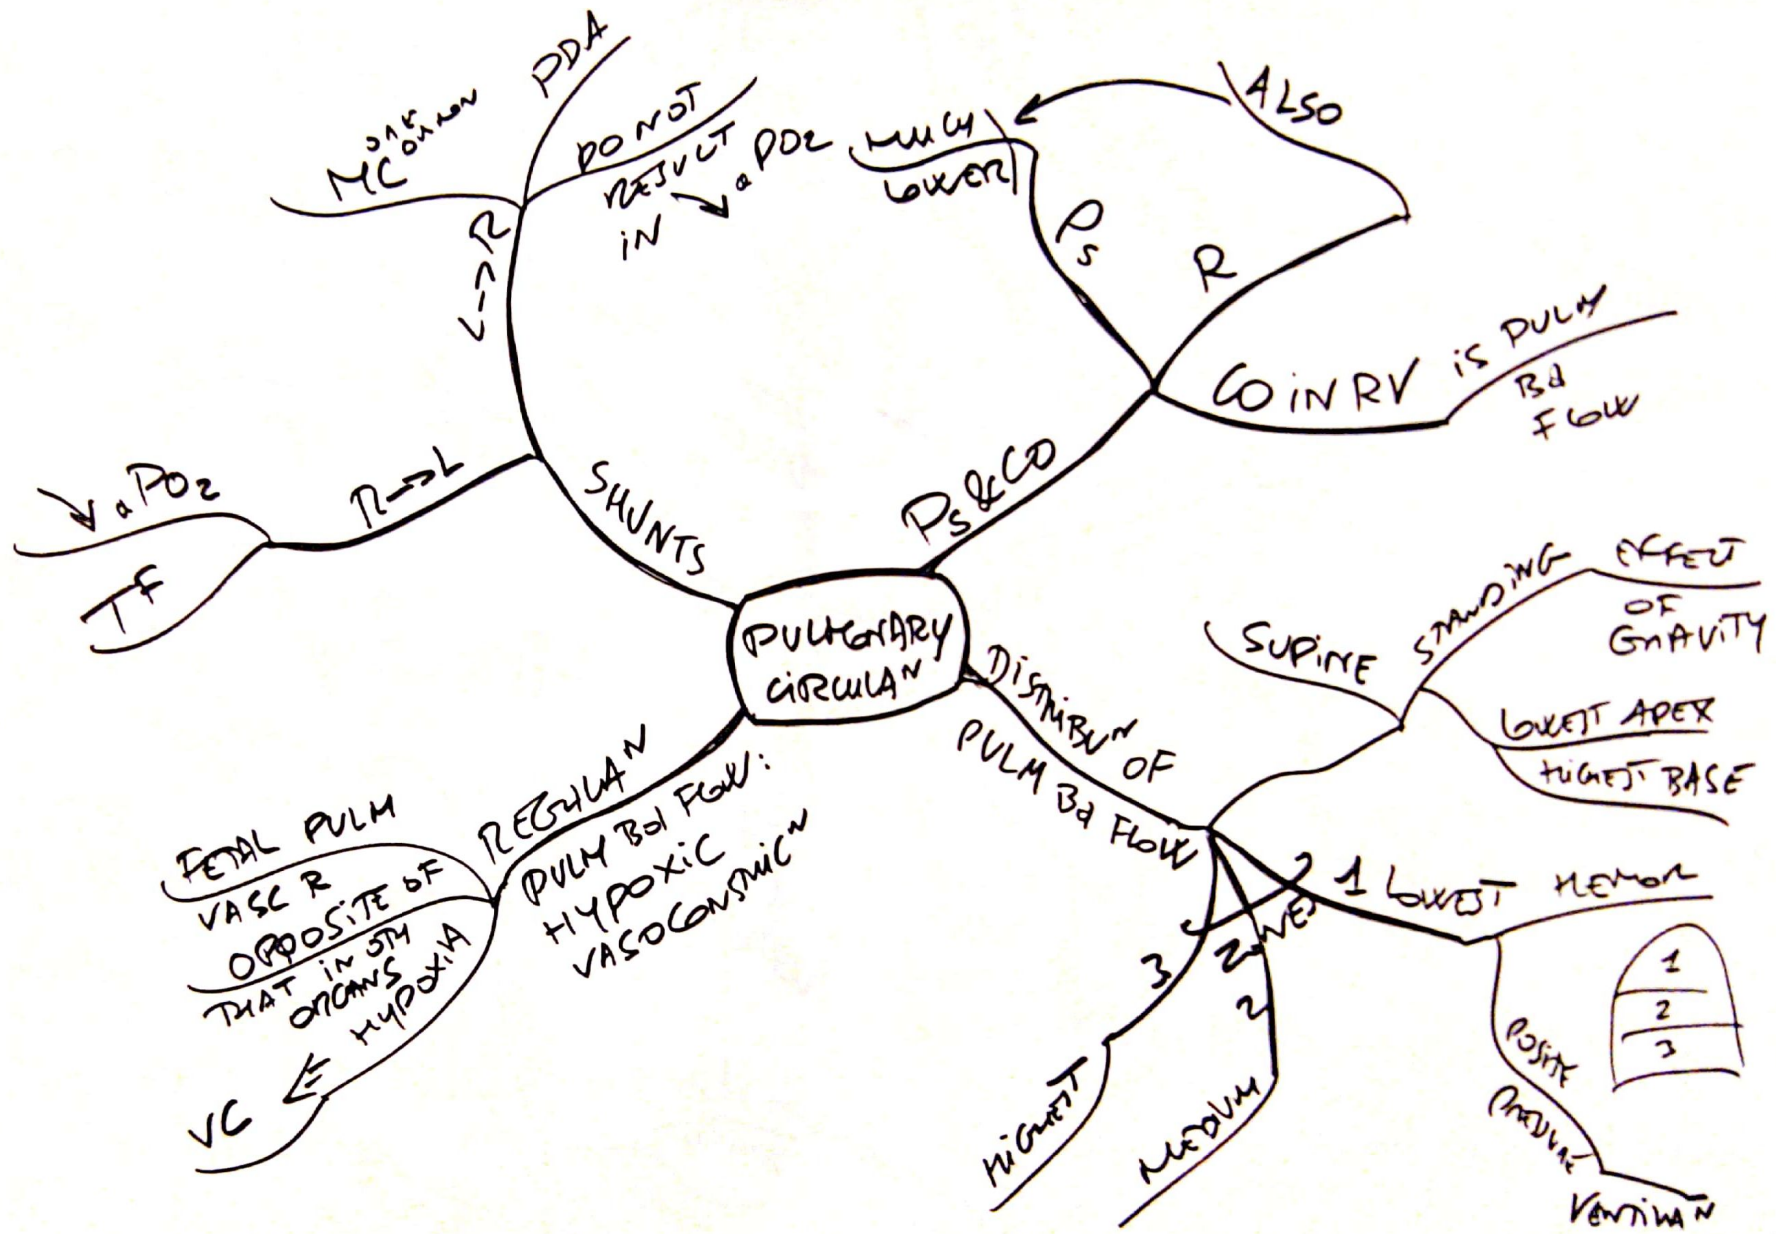 PULMONARY
CIRCULAN
SHUNTS
L-->R
MC
COMMON
PDA
DO NOT
RESULT
IN ↘ aPO2
R-->L
↘ aPO2
TF
Ps & CO
Ps
MUCH
LOWER
R
ALSO
CO IN RV IS PULM
Bd
FLOW
DISTRIBUN OF
PULM Bd FLOW
SUPINE
STANDING
EFFECT
OF
GRAVITY
LOWEST APEX
HIGHEST BASE
ZONES
1 LOWEST
HEMOR
POSITE
PRESSURE
VENTILAN
1
2
3
2
MEDIUM
3
HIGHEST
REGULAN
PULM Bd FLOW:
HYPOXIC
VASOCONSTRICN
FETAL PULM
VASC R
OPPOSITE OF
THAT IN OTH
ORGANS
HYPOXIA
⇒ VC